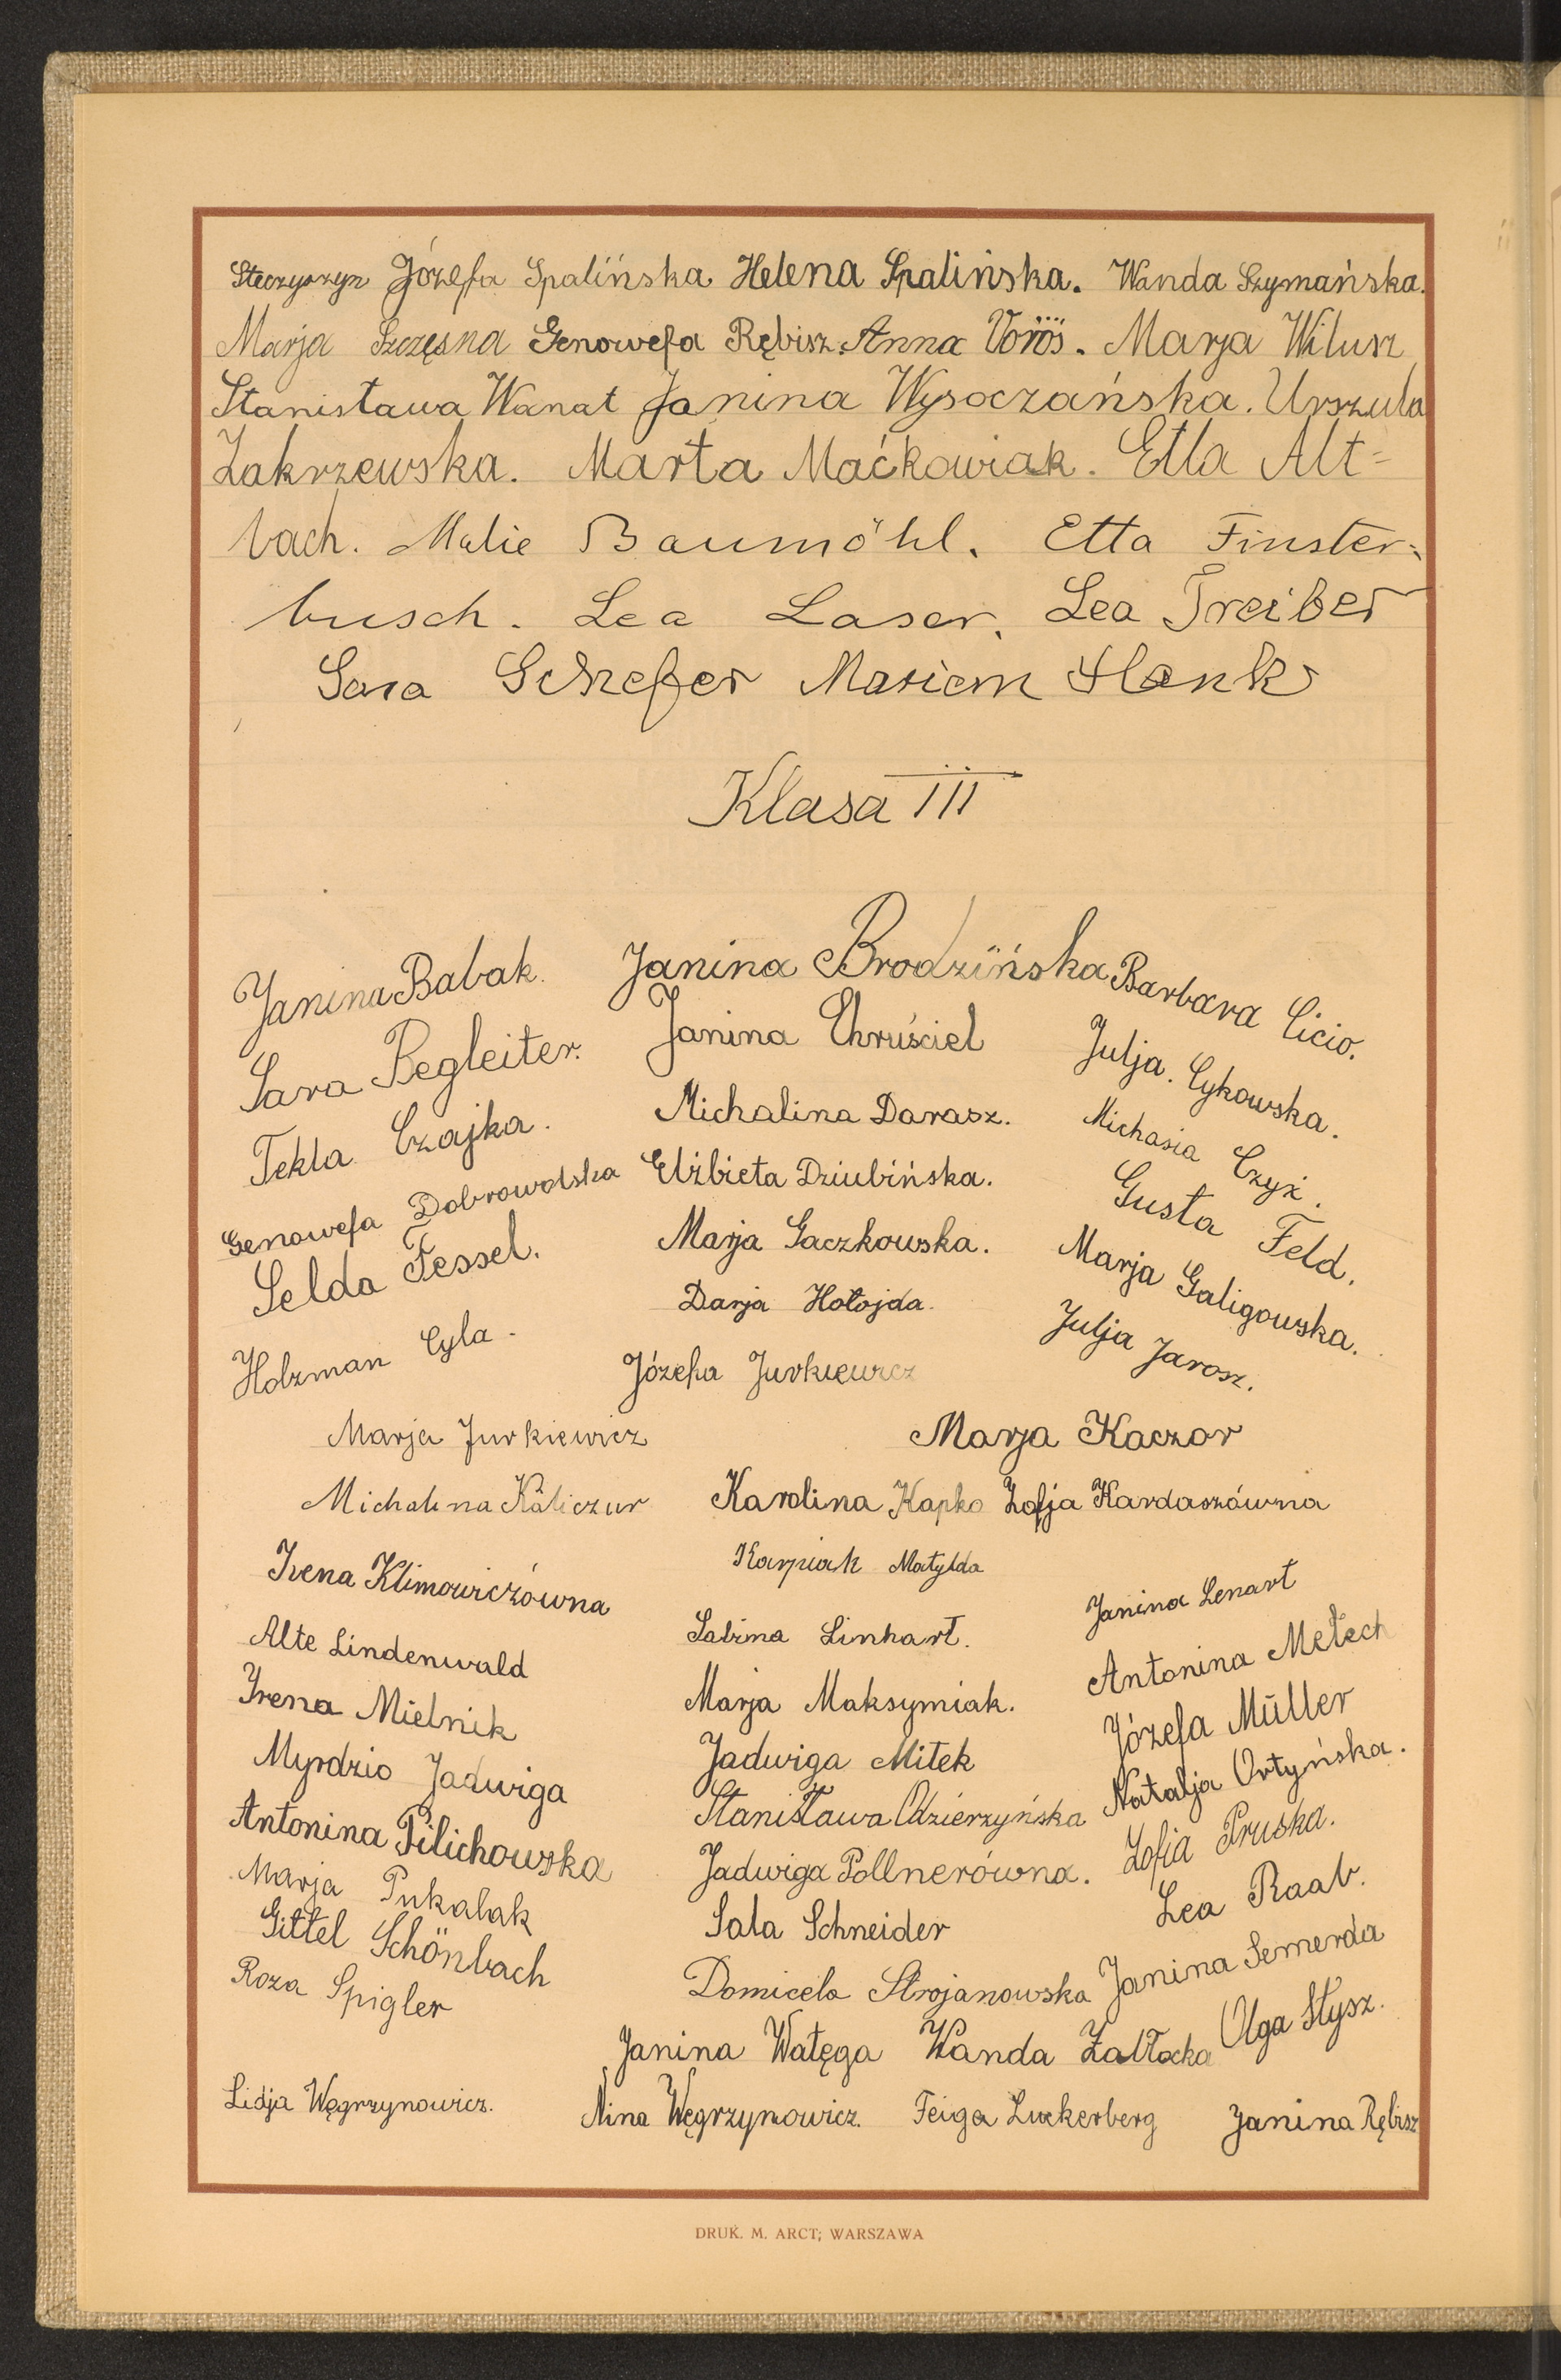 Steczyszyn Józefa Spalińska Helena Spalińska. Wanda Szymańska.
Marja Szczęsna Genowefa Rębisz. Anna Vörös. Marja Wilusz
Stanisława Wanat Janina Wysoczańska. Urszula
Zakrzewska. Marta Maćkowiak. Etla Alt=
bach. Malie Baumöhl. Etta Finster=
busch. Lea Laser. Lea Treiber
Sara Schefer Mariem Hank
Klasa III
Janina Babak. Janina Brodzińska Barbara Cicio.
Sara Begleiter. Janina Chruściel Julja Cykowska.
Tekla Czajka. Michalina Darasz. Michasia Czyż.
Genowefa Dobrowolska Elżbieta Dziubińska. Gusta Feld.
Selda Fessel. Marja Gaczkowska. Marja Galigowska.
Holzman Cyla. Darja Hołojda. Julja Jarosz.
Józefa Jurkiewicz
Marja Jurkiewicz Marja Kaczor
Michalina Kaliczur Karolina Kapko Zofja Kardaszówna
Irena Klimowiczówna Karpiak Matylda Janina Lenart
Alte Lindenwald Sabina Linhart. Antonina Melech
Irena Mielnik Marja Maksymiak. Józefa Müller
Myrdzio Jadwiga Jadwiga Mitek Natalja Ortyńska.
Antonina Pilichowska Stanisława Odzierzyńska Zofia Pruska.
Marja Pukalak Jadwiga Pollnerówna. Lea Raab.
Gittel Schönbach Sala Schneider Janina Semerda
Roza Spigler Domicela Strojanowska Olga Słysz.
Janina Wałęga Wanda Załłocka
Lidja Węgrzynowicz. Nina Węgrzynowicz. Feiga Zuckerberg Janina Rębisz
DRUK. M. ARCT; WARSZAWA